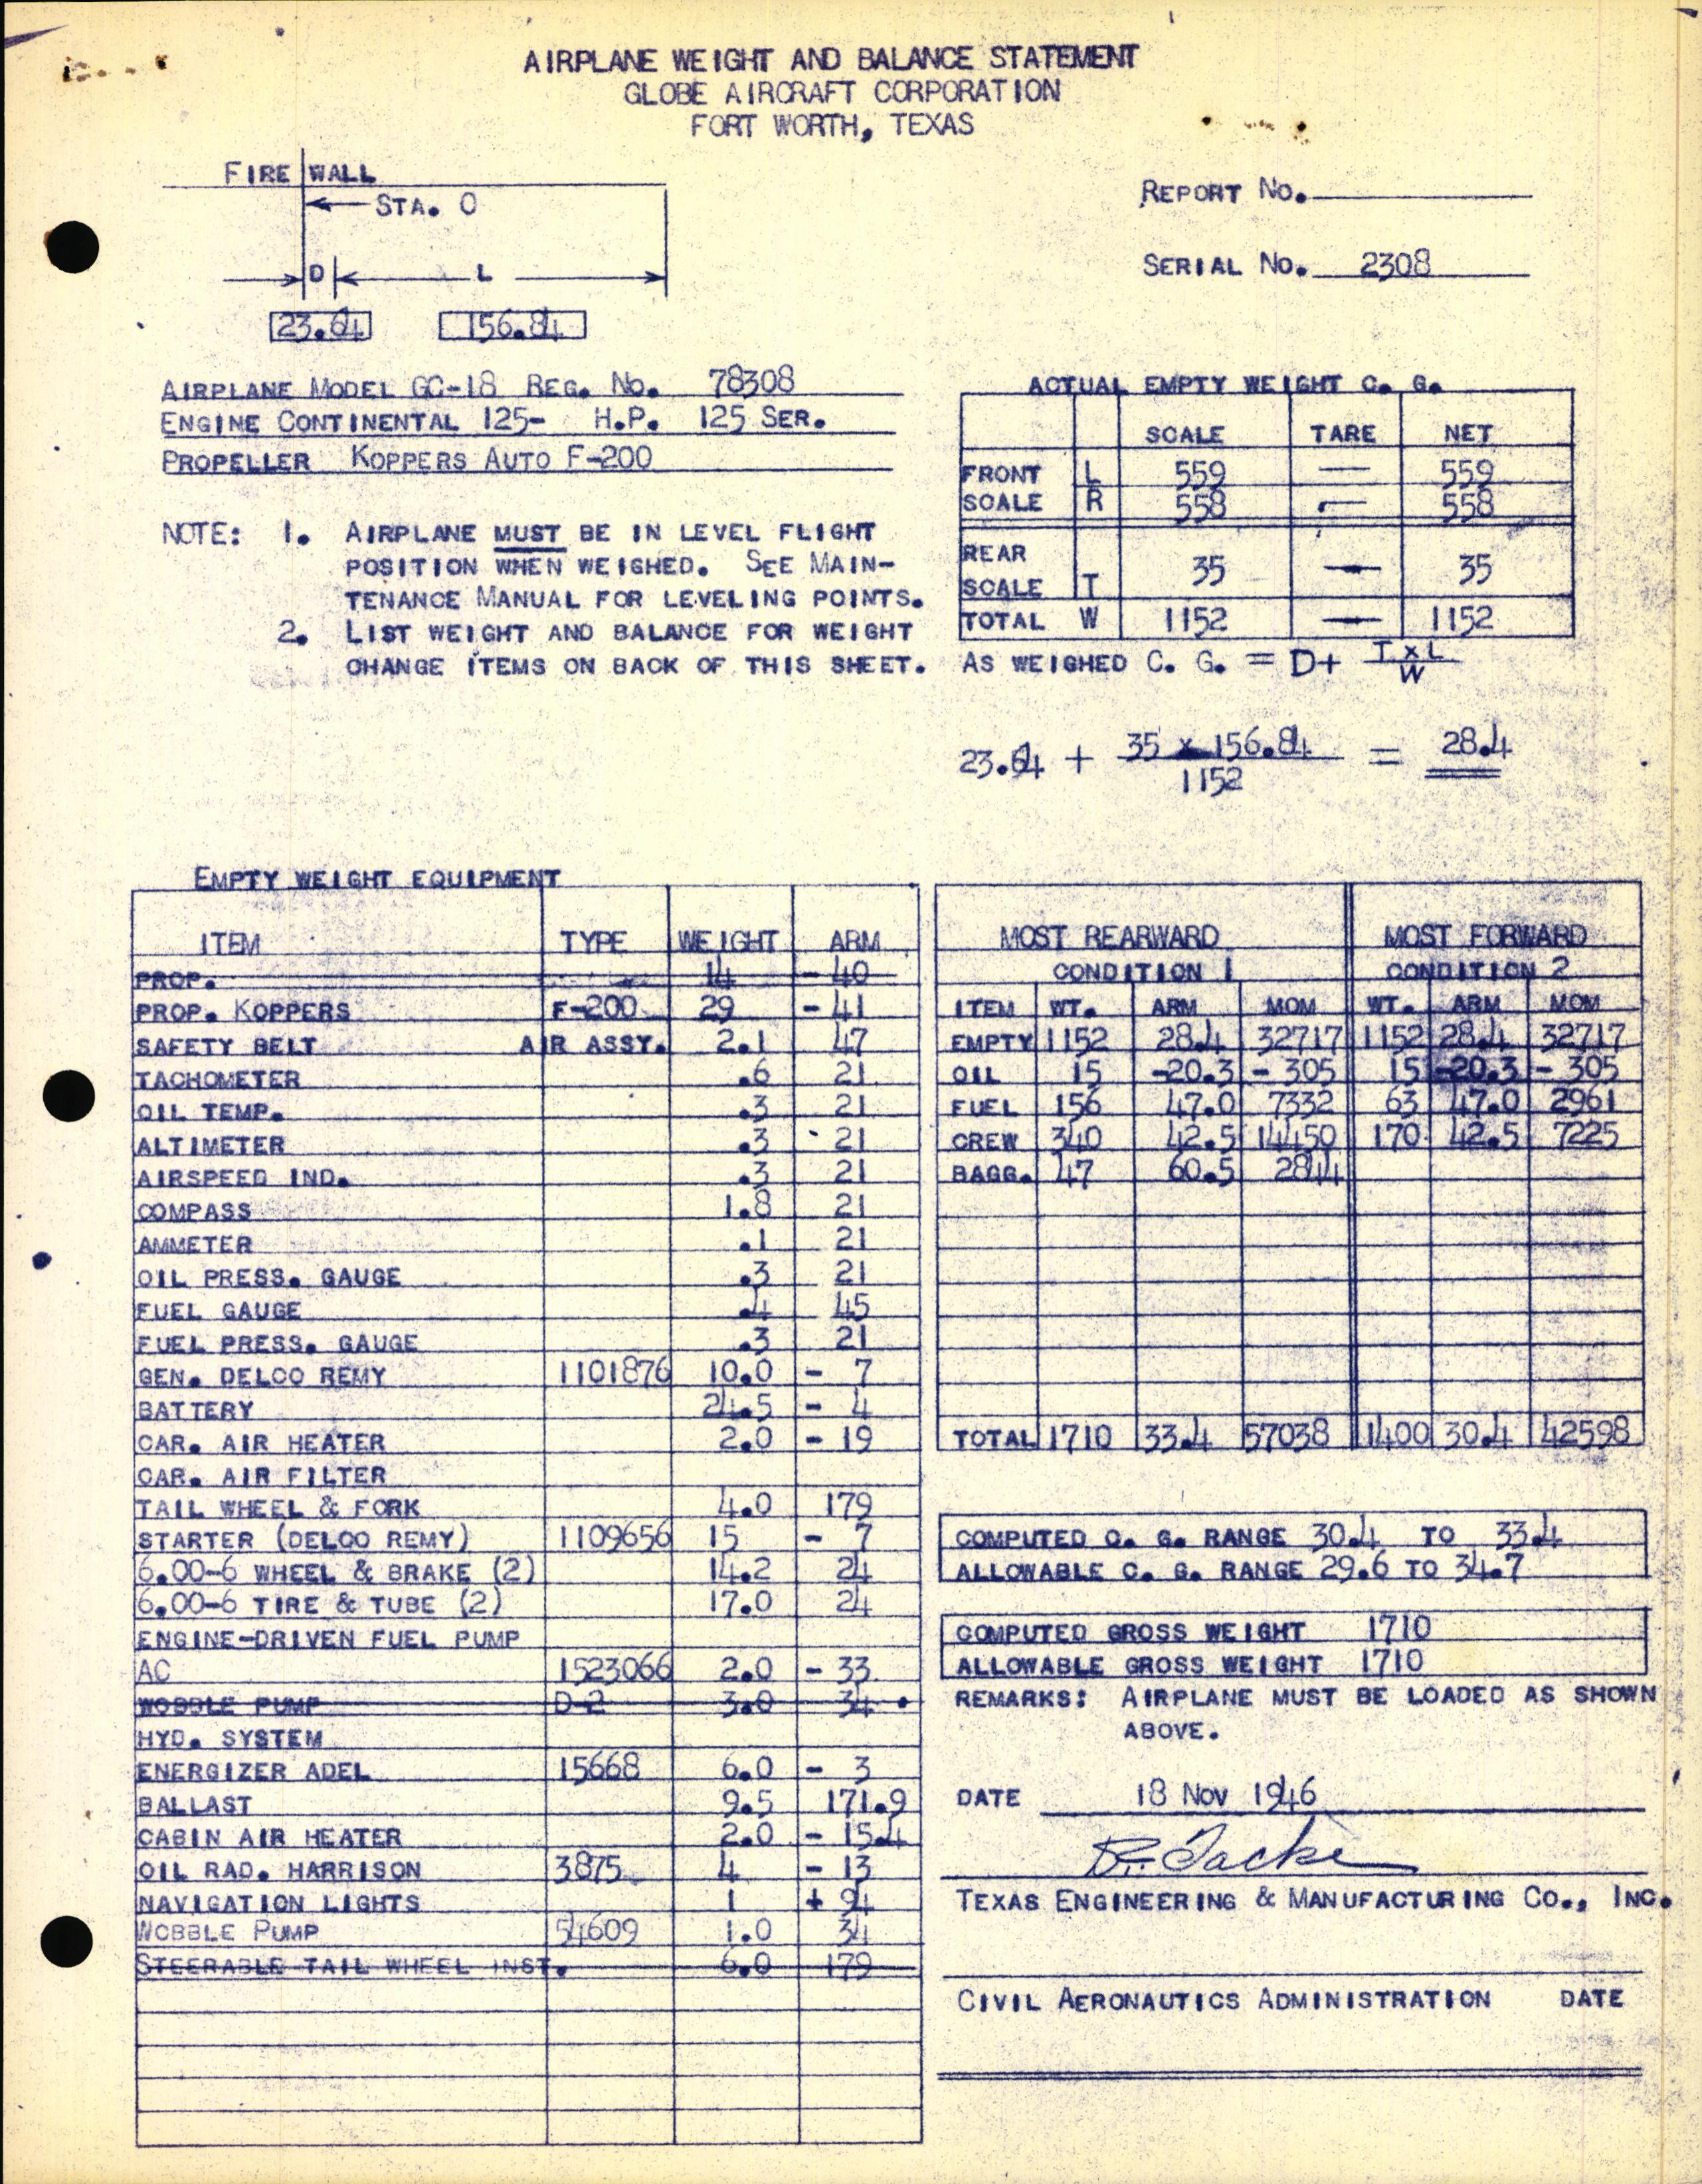 AIRPLANE WEIGHT AND BALANCE STATEMENT
GLOBE AIRCRAFT CORPORATION
FORT WORTH, TEXAS
FIRE WALL
STA. 0
D L
23.64 156.84
REPORT NO.
SERIAL NO. 2308
AIRPLANE MODEL GC-1B REG. NO. 78308
ENGINE CONTINENTAL 125- H.P. 125 SER.
PROPELLER KOPPERS AUTO F-200
NOTE: 1. AIRPLANE MUST BE IN LEVEL FLIGHT
POSITION WHEN WEIGHED. SEE MAIN-
TENANCE MANUAL FOR LEVELING POINTS.
2. LIST WEIGHT AND BALANCE FOR WEIGHT
CHANGE ITEMS ON BACK OF THIS SHEET.
ACTUAL EMPTY WEIGHT C. G.
SCALE TARE NET
FRONT L 559 — 559
SCALE R 558 — 558
REAR
SCALE T 35 — 35
TOTAL W 1152 — 1152
AS WEIGHED C. G. = D+ T x L
W
23.64 + 35 x 156.84 = 28.4
1152
EMPTY WEIGHT EQUIPMENT
ITEM TYPE WEIGHT ARM
PROP. 14 - 40
PROP. KOPPERS F-200 29 - 41
SAFETY BELT AIR ASSY. 2.1 47
TACHOMETER .6 21
OIL TEMP. .3 21
ALTIMETER .3 21
AIRSPEED IND. .3 21
COMPASS 1.8 21
AMMETER .1 21
OIL PRESS. GAUGE .3 21
FUEL GAUGE .4 45
FUEL PRESS. GAUGE .3 21
GEN. DELCO REMY 1101876 10.0 - 7
BATTERY 24.5 - 4
CAR. AIR HEATER 2.0 - 19
CAR. AIR FILTER
TAIL WHEEL & FORK 4.0 179
STARTER (DELCO REMY) 1109656 15 - 7
6.00-6 WHEEL & BRAKE (2) 14.2 24
6.00-6 TIRE & TUBE (2) 17.0 24
ENGINE-DRIVEN FUEL PUMP
AC 1523066 2.0 - 33
WOBBLE PUMP D-2 3.0 34
HYD. SYSTEM
ENERGIZER ADEL 15668 6.0 - 3
BALLAST 9.5 171.9
CABIN AIR HEATER 2.0 - 15.4
OIL RAD. HARRISON 3875 4 - 13
NAVIGATION LIGHTS 1 + 94
WOBBLE PUMP 54609 1.0 34
STEERABLE TAIL WHEEL INST. 6.0 179
MOST REARWARD MOST FORWARD
CONDITION 1 CONDITION 2
ITEM WT. ARM MOM WT. ARM MOM
EMPTY 1152 28.4 32717 1152 28.4 32717
OIL 15 -20.3 - 305 15 -20.3 - 305
FUEL 156 47.0 7332 63 47.0 2961
CREW 340 42.5 14450 170 42.5 7225
BAGG. 47 60.5 2844
TOTAL 1710 33.4 57038 1400 30.4 42598
COMPUTED C. G. RANGE 30.4 TO 33.4
ALLOWABLE C. G. RANGE 29.6 TO 34.7
COMPUTED GROSS WEIGHT 1710
ALLOWABLE GROSS WEIGHT 1710
REMARKS: AIRPLANE MUST BE LOADED AS SHOWN
ABOVE.
DATE 18 NOV 1946
TEXAS ENGINEERING & MANUFACTURING CO., INC.
CIVIL AERONAUTICS ADMINISTRATION DATE